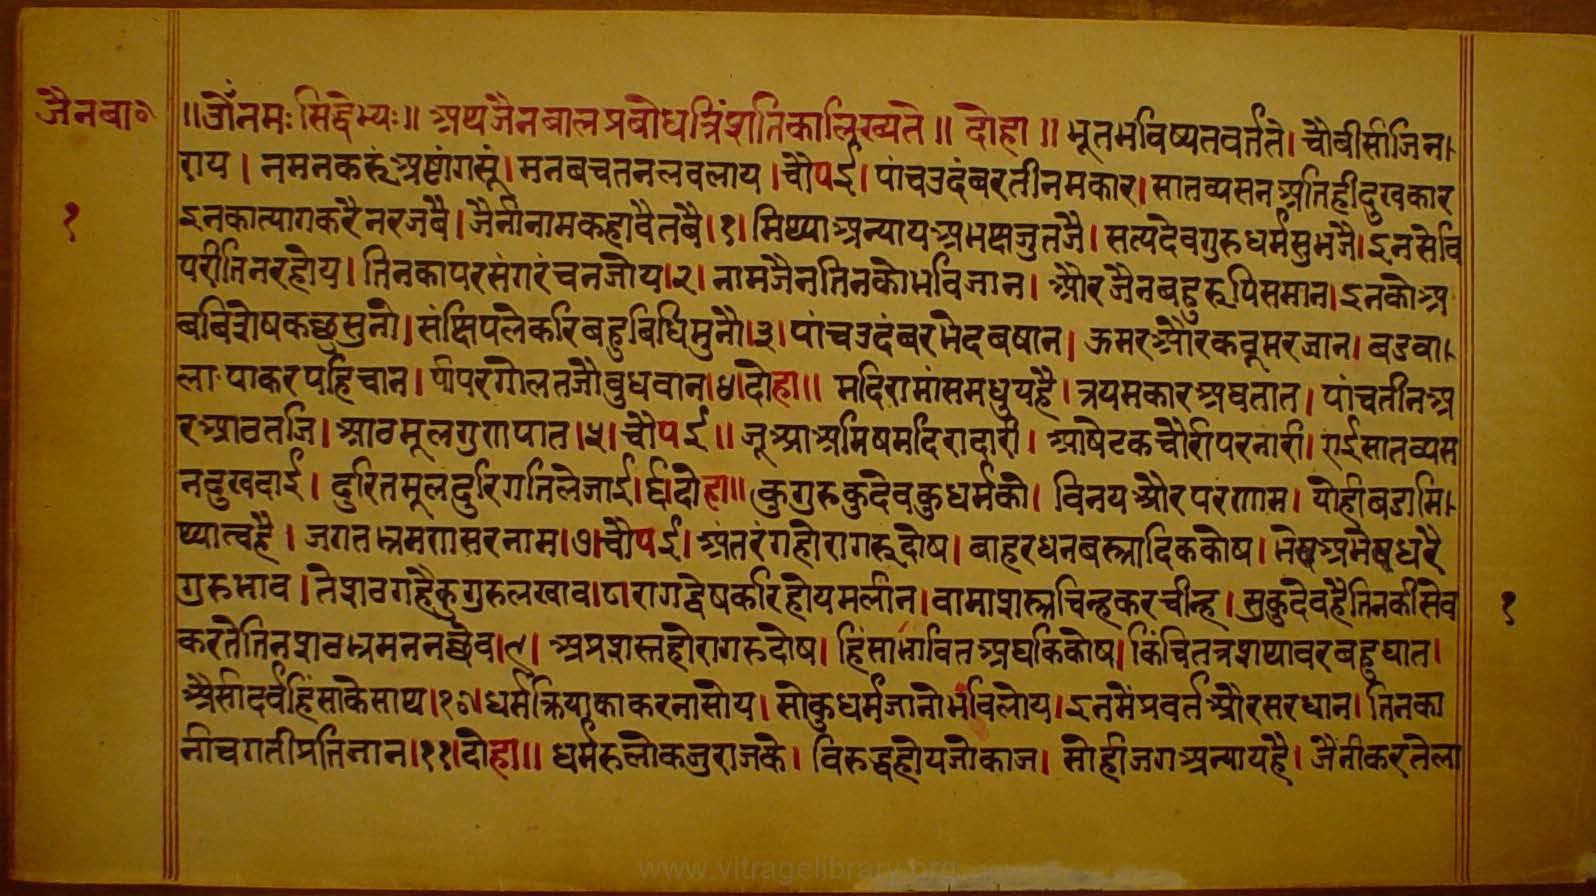 जैनबा०
॥ॐनमः सिद्धेभ्यः॥ अथ जैनबालप्रबोधत्रिंशतिकालिख्यते॥ दोहा॥ भूतभविष्यतवर्तते। चौबीसौजिन।
राय। नमनकरूंअष्टांगसूं। मनबचतनलवलाय। चौपई। पांचउदंबरतीनमकार। सातव्यसनअतिहीदुखकार
१
इनकात्यागकरैनरजबै। जैनीनामकहावैतबै।१। मिथ्याअन्यायअभषजुतजै। सत्यदेवगुरुधर्मसुभजै। इनसेवि
परीतिनरहोय। तिनकापरसंगरंचनजोय।२। नामजैनतिनकोभविजान। औरजैनबहुरूपिसमान। इनकोअ
बबिशेषकछुसुनो। संक्षिपलेकरिबहुबिधिमुनौ।३। पांचउदंबरभेदबषान। ऊमरऔरकठूमरजान। बडवा।
लापाकरपहिचान। पीपरगोलतजौवुधवान।४। दोहा॥ मदिरामांसमधुयहै। त्रयमकारअघतात। पांचतीनअ
रआठतजि। आठमूलगुणपात।५। चौपई॥ जूआअमिषमदिरादारी। आषेटकचौरीपरनारी। एईसातव्यस
नदुखदाई। दुरितमूलदुरिगतिलेजाई।६। दोहा॥ कुगुरुकुदेवकुधर्मको। विनयऔरपरणाम। योहीबडामि।
थ्यात्वहै। जगतभ्रमणासरनाम।७। चौपई। अंतरंगहोरागरूदोष। बाहरधनबस्त्रादिककोष। भेषअभेषधरै
गुरुभाव। तेशठगहैकुगुरुलखाव।८। रागद्वेषकरिहोयमलीन। वामाशस्त्रचिन्हकरचीन्ह। सुकुदेवहैतिनकीसेव
१
करतेतिनशठभ्रमननछेव।९। अप्रशस्तहोरागरुदोष। हिंसाभावितअघकिकोष। किंचितत्रशथावरबहुघात।
औसीदर्वहिंसाकेसाथ।१०। धर्मक्रियाकाकरनासोय। सोकुधर्मजानोभविलोय। इनमेंप्रवर्तऔरसरधान। तिनका
नीचगतीप्रतिजान।११। दोहा॥ धर्मरुलोकजुराजके। विरुद्धहोयजोकाज। सोहीजगअन्यायहै। जैनीकरतेला
www.vitragelibrary.org